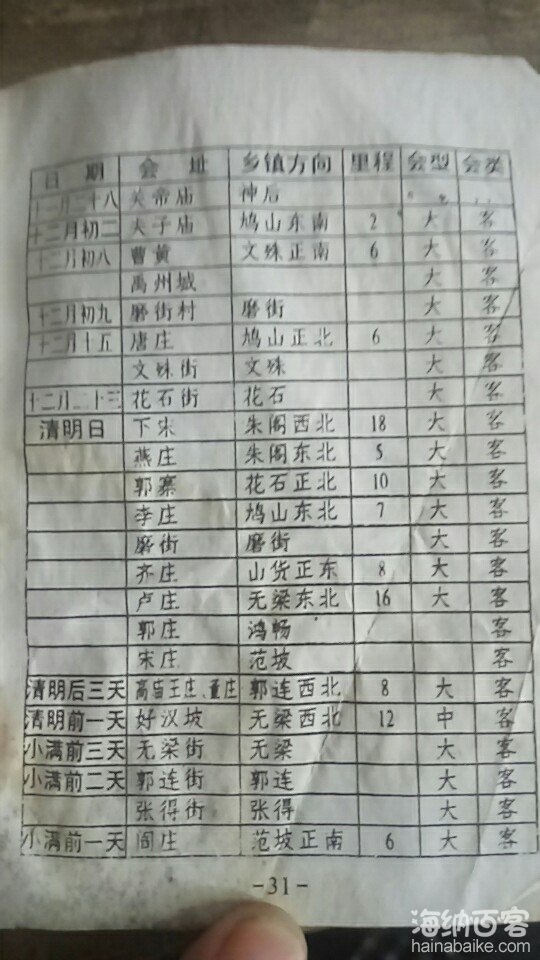 日期 会址 乡镇方向 里程 会型 会类
十二月二十八 关帝庙 神后
十二月初二 夫子庙 鸠山东南 2 大 客
十二月初八 曹黄 文殊正南 6 大 客
禹州城 大 客
十二月初九 磨街村 磨街 大 客
十二月十五 唐庄 鸠山正北 6 大 客
文殊街 文殊 大 客
十二月二十三 花石街 花石 大 客
清明日 下宋 朱阁西北 18 大 客
燕庄 朱阁东北 5 大 客
郭寨 花石正北 10 大 客
李庄 鸠山东北 7 大 客
磨街 磨街 大 客
齐庄 山货正东 8 大 客
卢庄 无梁东北 16 大 客
郭庄 鸿畅 客
宋庄 范坡 客
清明后三天 高庙王庄、董庄 郭连西北 8 大 客
清明前一天 好汉坡 无梁西北 12 中 客
小满前三天 无梁街 无梁 大 客
小满前二天 郭连街 郭连 大 客
张得街 张得 大 客
小满前一天 阎庄 范坡正南 6 大 客
-31-
海纳百客
hainabaike.com